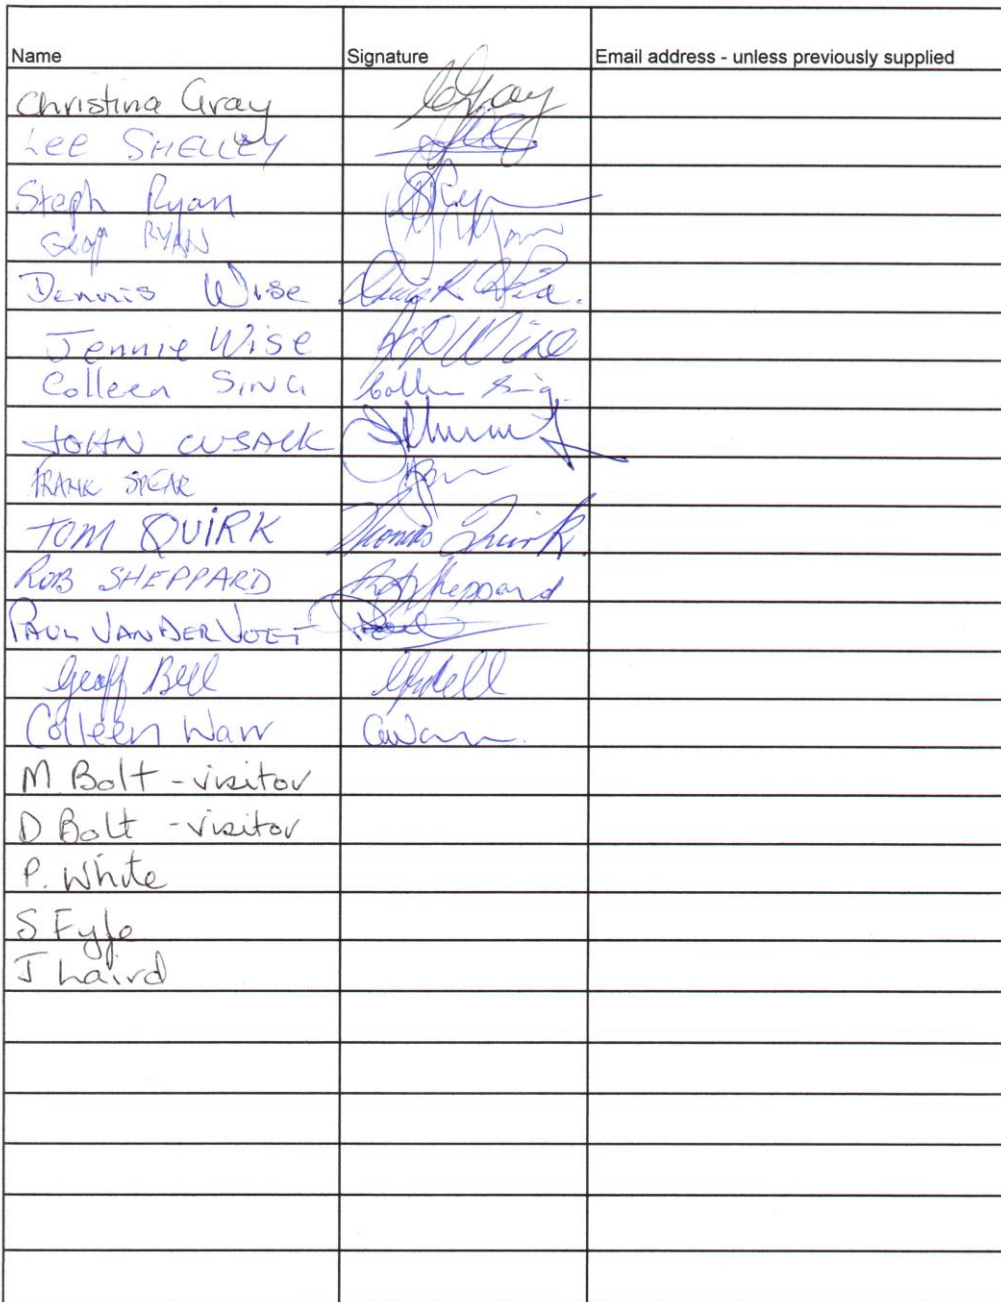 Name Signature Email address - unless previously supplied
Christina Gray CGray
Lee SHELLEY
Steph Ryan SRyan
Geoff RYAN
Dennis Wise
Jennie Wise Wise
Colleen SING Colleen Sing
JOHN CUSACK
FRANK SPEAR
TOM QUIRK Thomas Quirk
ROB SHEPPARD Rob Sheppard
PAUL VANDER VOET
Geoff Bell
Colleen Warr CWarr
M Bolt - visitor
D Bolt - visitor
P. White
S Fyfe
J Laird